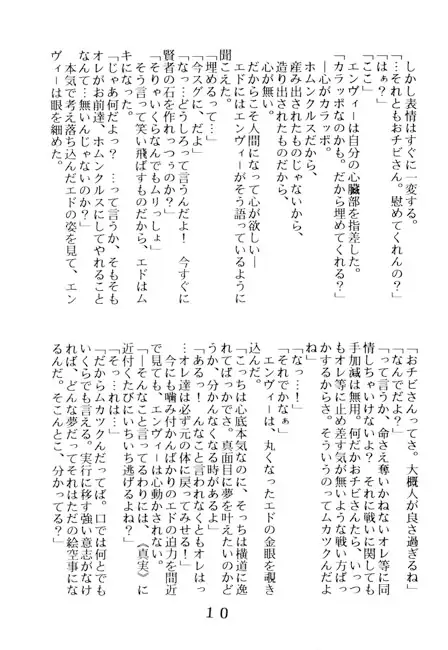 しかし表情はすぐに一変する。
「…それともおチビさん。慰めてくれんの？」
「はぁ？」
「ここ」
エンヴィーは自分の心臓部を指差した。
「カラッポなのかも。だから埋めてくれる？」
―心がカラッポ。
ホムンクルスだから、
産み出されたものじゃないから、
造り出されたものだから、
心が無い。
だからこそ人間になって心が欲しい―
エドにはエンヴィーがそう語っているように
聞こえた。
「埋めるって…」
「今スグに、だよ」
「なっ…どうしろって言うんだよ！　今すぐに
賢者の石を作れっつうのか？」
「そりゃいくらなんでもムリっしょ」
そう言って笑い飛ばすものだから、エドはム
キになった。
「じゃあ何だよっ？　…って言うか、そもそも
オレがお前達、ホムンクルスにしてやれること
なんて…無いんじゃないのか？」
本気で考え落ち込んだエドの姿を見て、エン
ヴィーは眼を細めた。
「おチビさんってさ。大概人が良さ過ぎるね」
「なんでだよ？」
「って言うか、命さえ奪いかねないオレ等に同
情しちゃいけないよ？　それに戦いに関しても
手加減は無用。何だかおチビさんたら、いっつ
もオレ等に止め差す気が無いような戦い方ばっ
かするからさ。そういうのってムカツクんだよ
ね」
「なっ…！」
「それでかなぁ」
エンヴィーは、丸くなったエドの金眼を覗き
込んだ。
「こっちは心底本気なのに、そっちは横道に逸
れてばっかでさ。真面目に夢を叶えたいのかど
うか、分かんなくなる時があるよ」
「あるっ！　んなこと言われなくともオレはっ
…オレ達は必ず元の体に戻ってみせる！」
今にも噛み付かんばかりのエドの迫力を間近
で見ても、エンヴィーは心動かされない。
「―そんなこと言ってるわりには、《真実》に
近付くたびにいちいち逃げるよね？」
「そっ…それは…」
「だからムカツクんだって。口では何とでも
いくらでも言える。実行に移す強い意志がなけ
れば、どんな夢だってそれはただの絵空事にな
るんだ。そこんとこ、分かってる？」
10